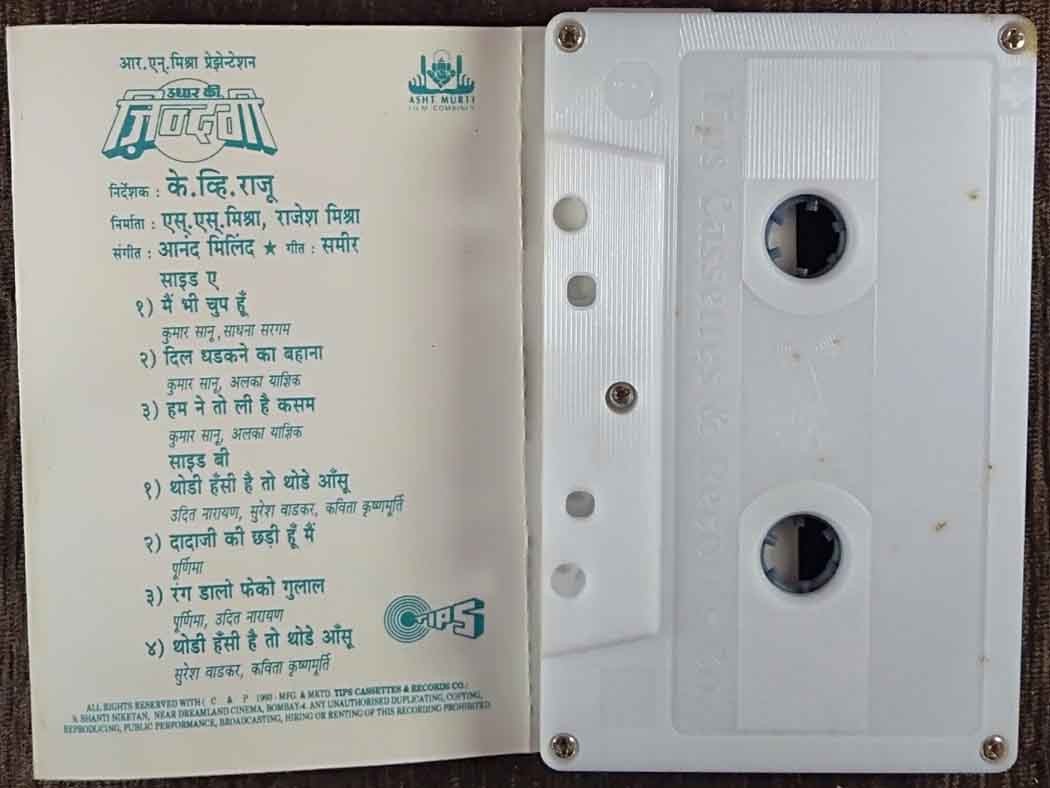 आर.एन्.मिश्रा प्रेझेन्टेशन
उधार की
ज़िन्दगी
ASHT MURTI
FILM COMBINES
निर्देशक : के.व्हि.राजू
निर्माता : एस्.एस्.मिश्रा, राजेश मिश्रा
संगीत : आनंद मिलिंद ★ गीत : समीर
साइड ए
१) मैं भी चुप हूँ
कुमार सानू, साधना सरगम
२) दिल धडकने का बहाना
कुमार सानू, अलका याज्ञिक
३) हम ने तो ली है कसम
कुमार सानू, अलका याज्ञिक
साइड बी
१) थोडी हँसी है तो थोडे आँसू
उदित नारायण, सुरेश वाडकर, कविता कृष्णमूर्ति
२) दादाजी की छड़ी हूँ मैं
पूर्णिमा
३) रंग डालो फेको गुलाल
पूर्णिमा, उदित नारायण
४) थोडी हँसी है तो थोडे आँसू
सुरेश वाडकर, कविता कृष्णमूर्ति
TIPS
ALL RIGHTS RESERVED WITH ( C & P 1993 : MFG. & MKTD. TIPS CASSETTES & RECORDS CO.:
9, SHANTI NIKETAN, NEAR DREAMLAND CINEMA, BOMBAY-4. ANY UNAUTHORISED DUPLICATING, COPYING,
REPRODUCING, PUBLIC PERFORMANCE, BROADCASTING, HIRING OR RENTING OF THIS RECORDING PROHIBITED
Tips Cassettes & Rec